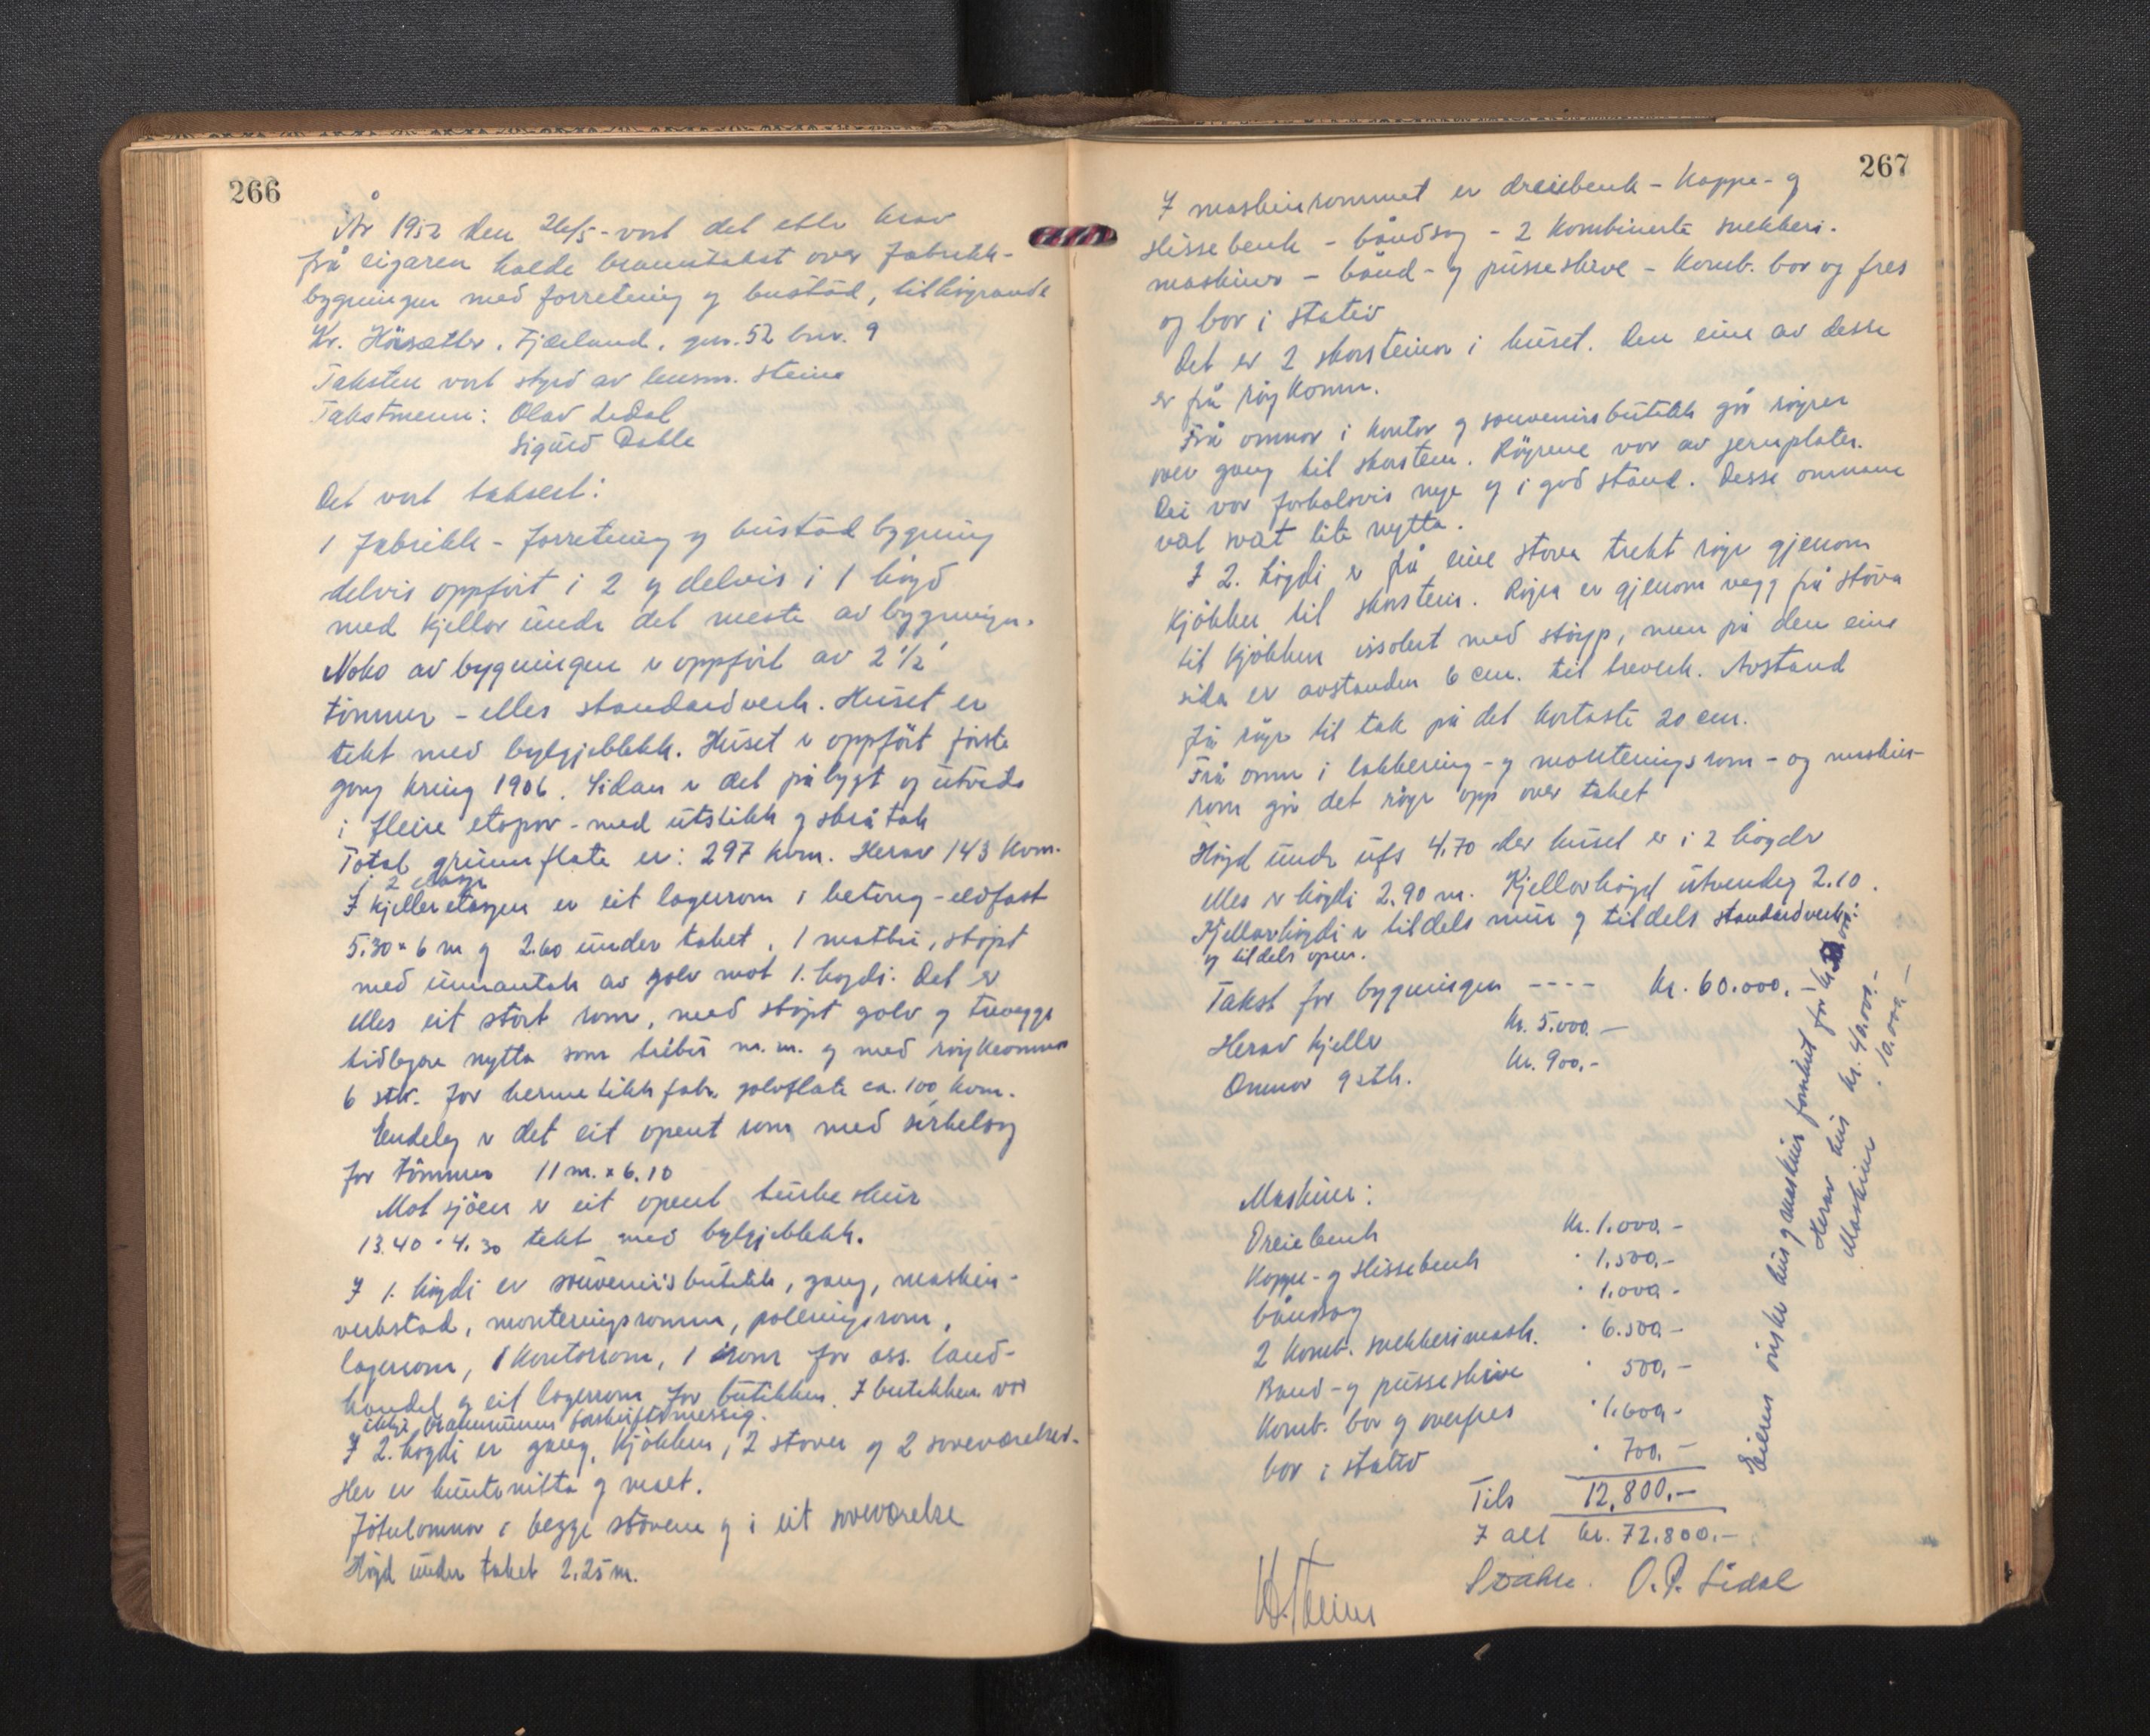 266
År 1952 den 26/5 - vart det etter krav
frå eigaren halde branntakst over fabrikk-
bygningen med forretning og bustad, tilhøyrande
Kr. Håsæther, Fjæland, gnr. 52 bnr. 9
Taksten vart styrd av lensm. Steine
Takstmenn: Olav Lidal
Sigurd Dahle
Det vart taksert:
1 fabrikk - forretning og bustad bygning
delvis oppført i 2 og delvis i 1 høgd
med kjellar under det meste av bygningen.
Noko av bygningen er oppført av 2 1/2"
tømmer - elles standardverk. Huset er
tekt med bylgjeblekk. Huset er oppført første
gong kring 1906. Sidan er det påbygt og utvida
i fleire etapar - med utstikk og skråtak
Total grunnflate er: 297 kvm. Herav 143 kvm.
i 2 etasje
I kjelleretasjen er eit lagerrom i betong - eldfast
5.30 x 6 m og 2.60 under taket. 1 matbu, støypt
med unnantak av golv mot 1. høgdi. Det er
elles eit stort rom, med støpt golv og trevegger
tidlegare nytta som trebu m.m. og med røykeomnar
6 stk. for hermetikkfabr. golvflate ca. 100 kvm.
Endeleg er det eit opent rom med sirkelsag
for tømmer 11 m. x 6.10
Mot sjøen er eit opent turke skur
13.40 x 4.30 tekt med bylgjeblekk.
I 1. høgdi er souvenirsbutikk, gang, maskin-
verkstad, monteringsromm, poleringsrom,
lagerrom, 1 kontorrom, 1 rom for ass. land-
handel og eit lagerrom for butikken. I butikken var
ikkje brannmuren forskriftsmessig.
I 2. høgdi er gang, kjøkken, 2 stover og 2 soveværelser.
Her er huntonitta og malt.
Jøtulomnar i begge stovene og i eit soveværelse
Høgd under taket 2.25 m.
267
I maskinrommet er dreiebenk - Kappe- og
slissebenk - båndsag - 2 kombinerte snekkeri-
maskiner - bånd- og pusseskive - komb. bor og fres
og bor i stativ
Det er 2 skorsteinar i huset. Den eine av desse
er frå røykomn.
Frå omnar i kontor og souvenirsbutikk går røyrer
over gang til skorstein. Røyrene var av jernplater.
Dei var forholdsvis nye og i god stand. Desse omnane
vart svært lite nytta.
I 2. høgdi er frå eine stova trekt røyr gjenom
kjøkken til skorstein. Røyra er gjenom vegg frå stova
til kjøkken issolert med støyp, men på den eine
sida er avstanden 6 cm. til treverk. Avstand
frå røyr til tak på det kortaste 20 cm.
Frå omn i lakkering- og monteringsrom - og maskin-
rom går det røyr opp over taket
Høgd under ufs 4.70 der huset er i 2 høgder
elles er høgdi 2.90 m. Kjellarhøgd utvendig 2.10.
Kjellarhøgdi er tildels mur og tildels standardverk
og tildels open.
Takst for bygningen ---- kr. 60.000.-
Herav kjeller kr. 5.000.-
Omnar 9 stk. kr. 900.-
Maskiner:
Dreiebenk kr. 1.000.-
Kappe- og slissebenk " 1.500.-
båndsag " 1.000.-
2 komb. snekkerimask. " 6.500.-
Band- og pusseskive " 500.-
Komb. bor og overfres " 1.600.-
bor i stativ " 700.-
Tils 12.800.-
I alt kr. 72.800.-
S Dahle. O. P. Lidal
Steine
Eieren ønsker hus og maskiner forsikret for kr.
Herav hus kr. 40.000.-
Maskiner " 10.000.-